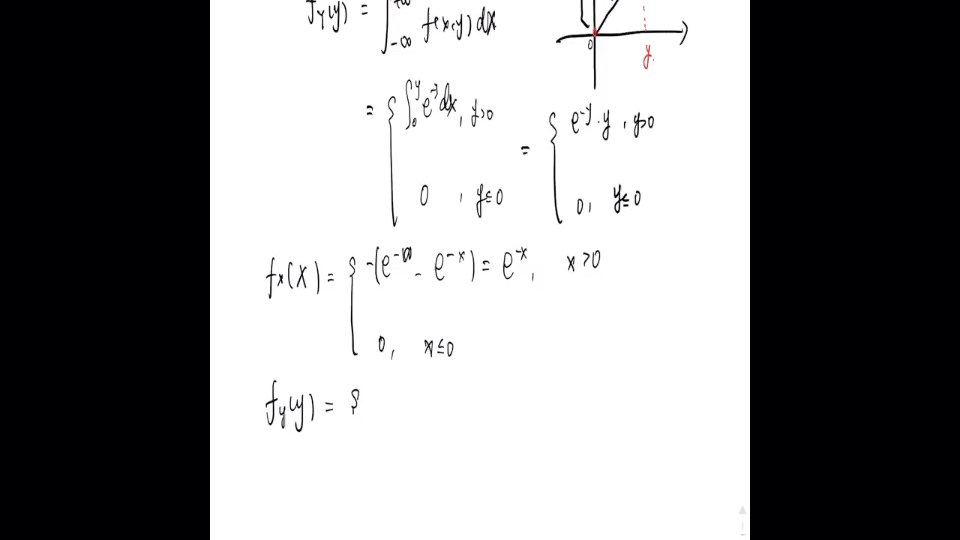 f_Y(y) = ∫_{-∞}^{+∞} f(x,y) dx
0 y
= { ∫_0^y e^{-y} dx, y>0 = { e^{-y}·y, y>0
0, y≤0 0, y≤0
f_X(X) = { -(e^{-∞} - e^{-x}) = e^{-x}, x>0
0, x≤0
f_y(y) = {